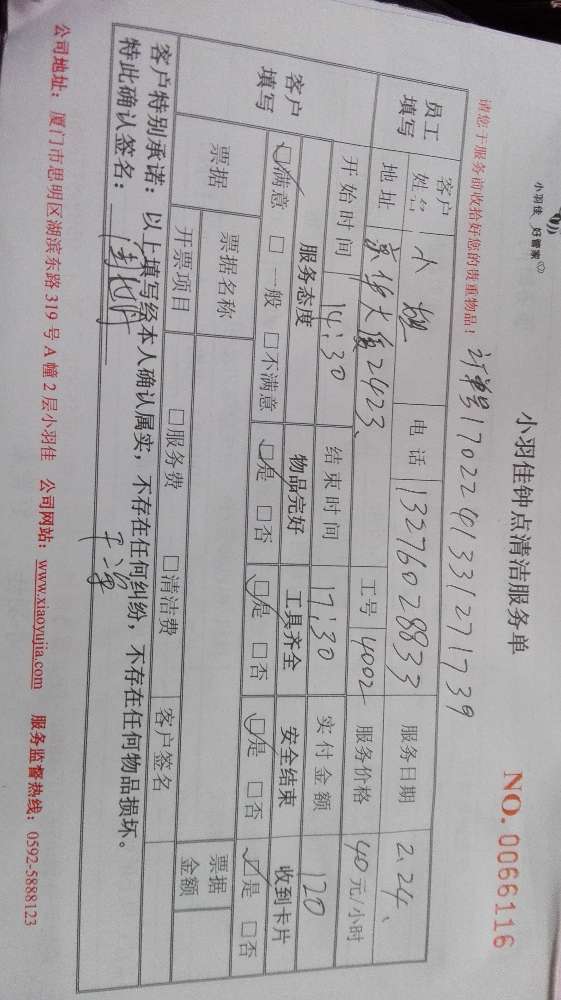 小羽佳 好管家
小羽佳钟点清洁服务单
NO. 0066116
请您于服务前收拾好您的贵重物品！ 订单号17022413312711739
员工填写 客户姓名 小 电话 13276028833 服务日期 2.24、
地址 京华大厦2423、 工号 4002 服务价格 40元/小时
客户填写 开始时间 14:30 结束时间 17:30 实付金额 120
服务态度 物品完好 工具齐全 安全结束 收到卡片
☑满意 □一般 □不满意 ☑是 □否 ☑是 □否 ☑是 □否 ☑是 □否
票据 票据名称 票据金额
开票项目 □服务费 □清洁费 客户签名
客户特别承诺：以上填写经本人确认属实，不存在任何纠纷，不存在任何物品损坏。
特此确认签名：
公司地址：厦门市思明区湖滨东路319号A幢2层小羽佳 公司网站：www.xiaoyujia.com 服务监督热线：0592-5888123